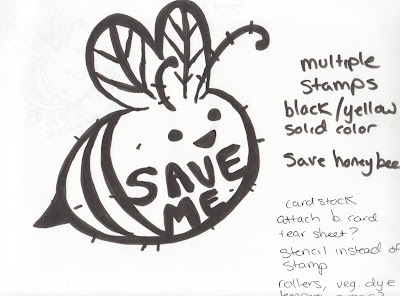 SAVE
ME.
multiple
stamps
black/yellow
solid color
Save honeybee
cardstock
attach b. card
tear sheet?
stencil instead of
stamp
rollers, veg. dye